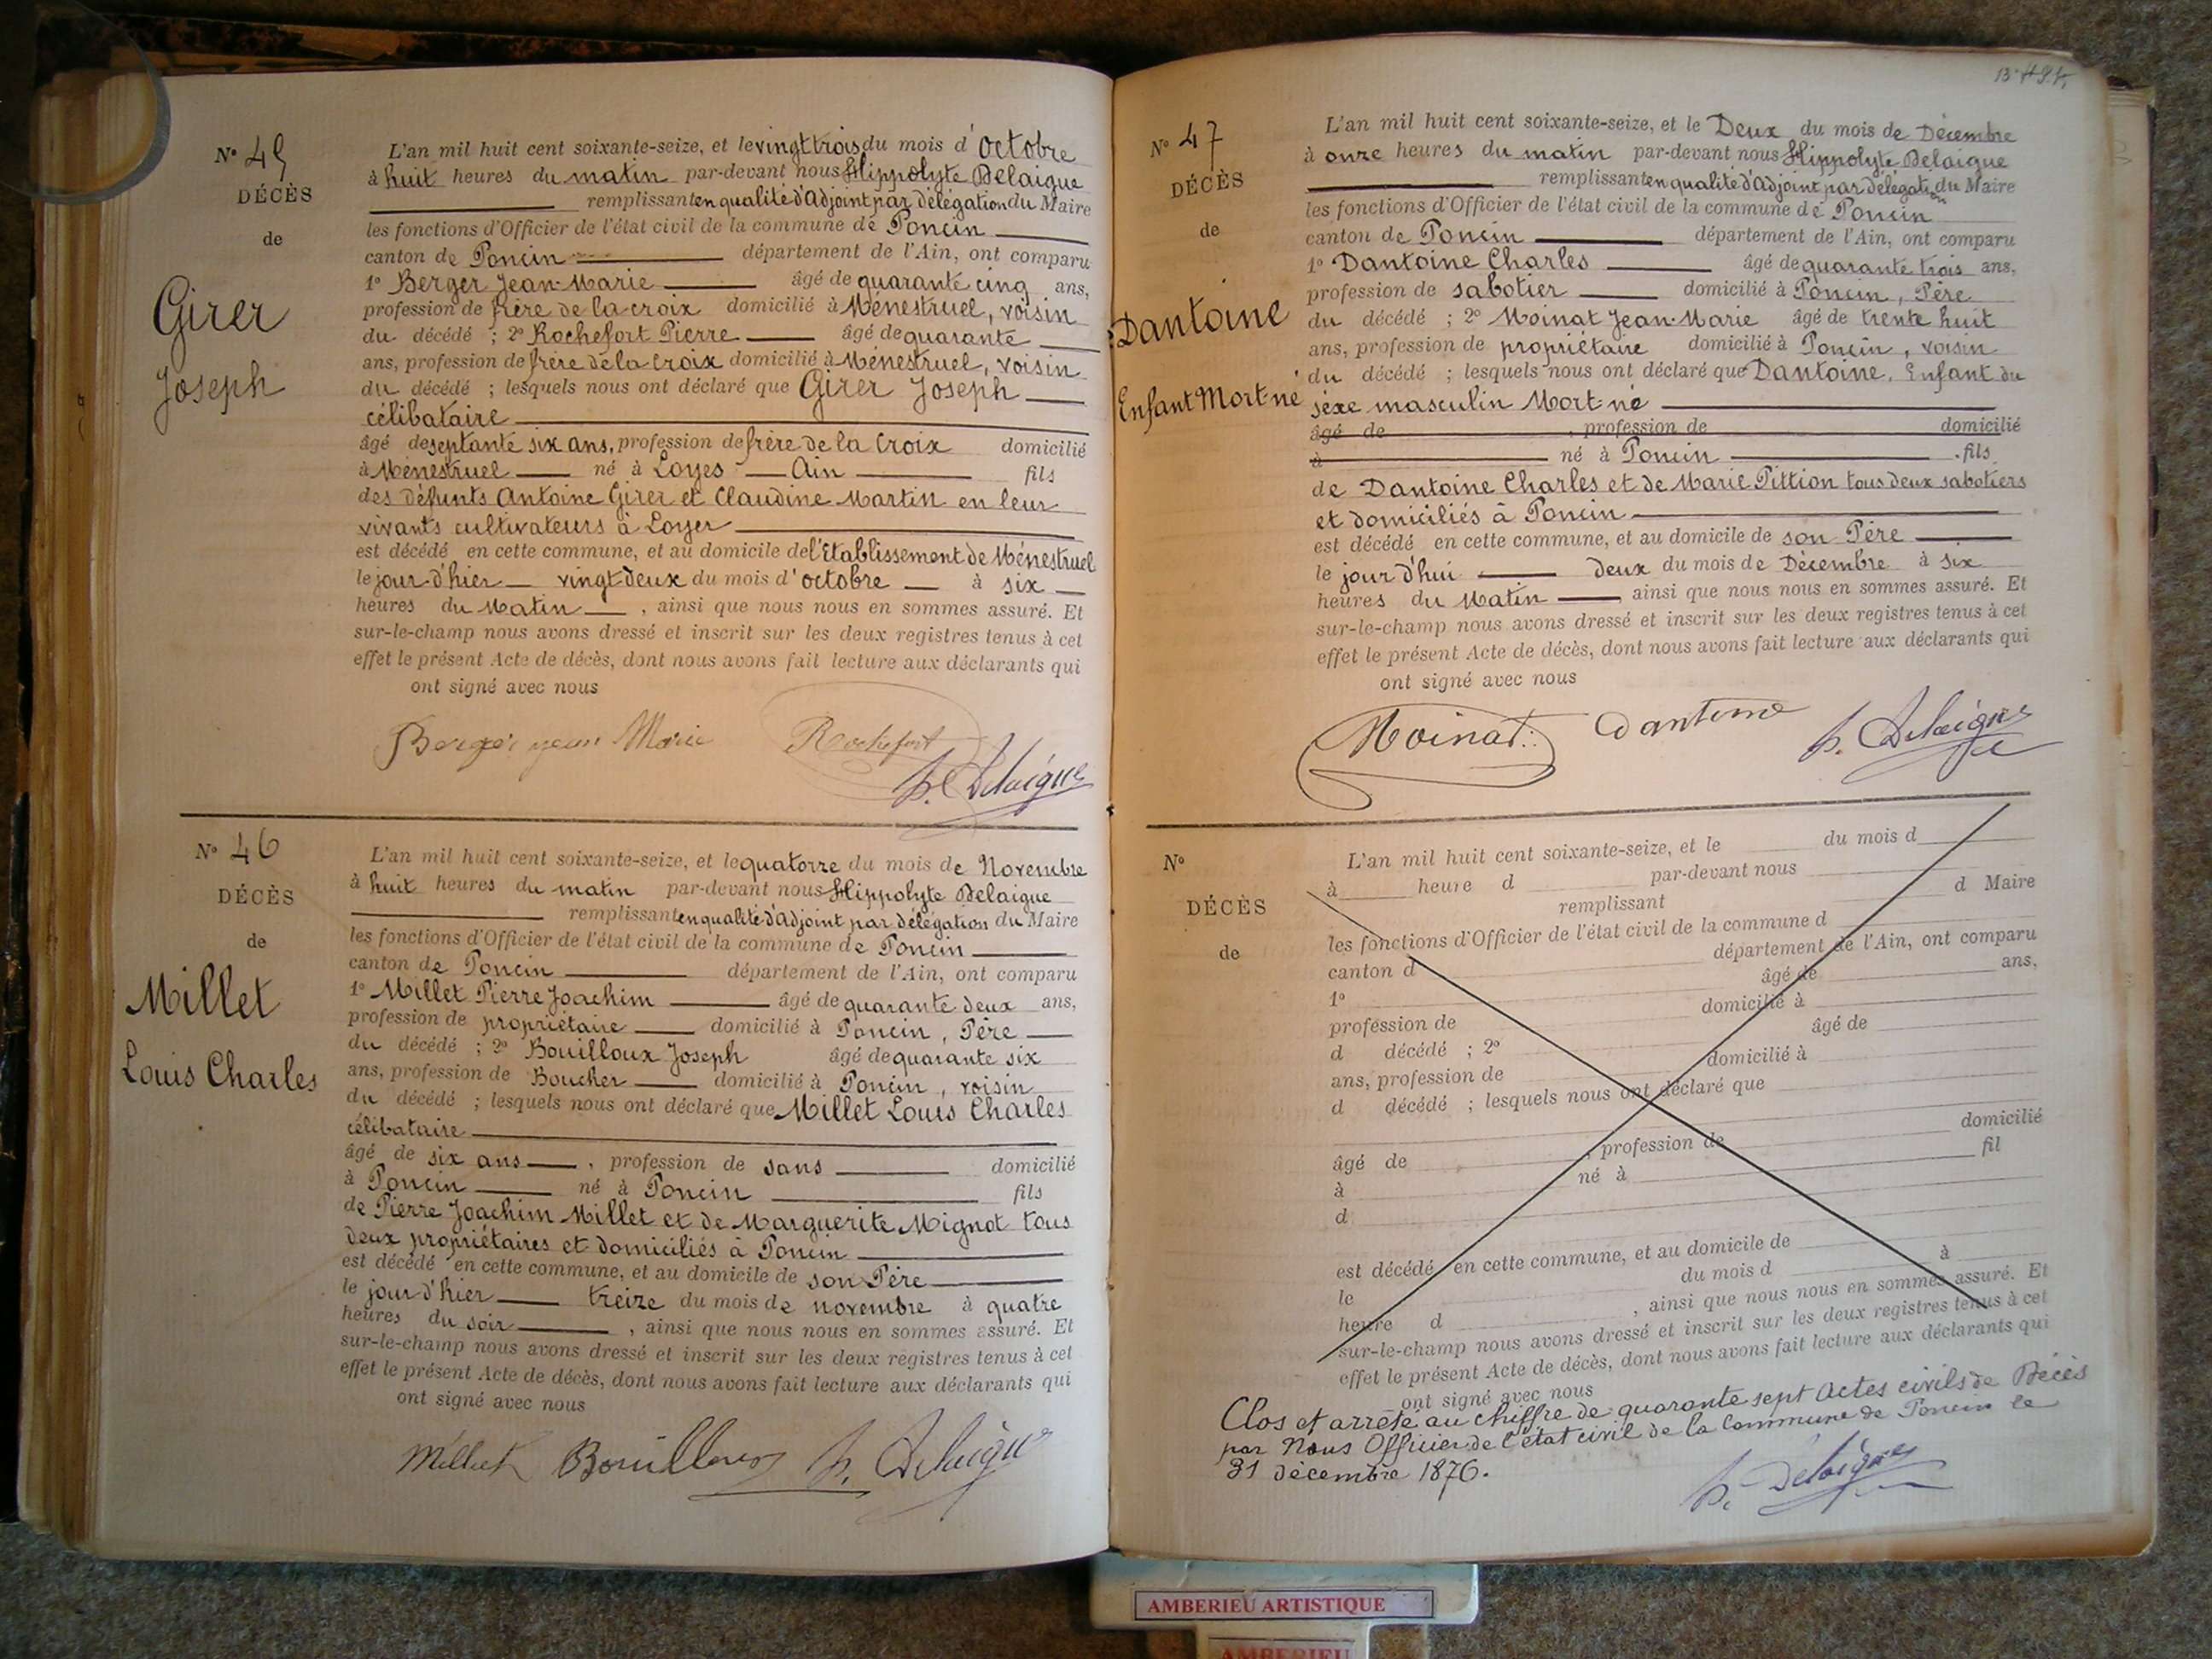 Nº 45
DÉCÈS
de
Girer
Joseph
L'an mil huit cent soixante-seize, et le vingt trois du mois d'octobre
à huit heures du matin par-devant nous Hippolyte Delaigue
remplissant en qualité d'Adjoint par délégation du Maire
les fonctions d'Officier de l'état civil de la commune de Poncin
canton de Poncin département de l'Ain, ont comparu
1º Berger Jean-Marie âgé de quarante cinq ans,
profession de frère de la croix domicilié à Ménestruel, voisin
du décédé ; 2º Rochefort Pierre âgé de quarante
ans, profession de frère de la Croix domicilié à Ménestruel, voisin
du décédé ; lesquels nous ont déclaré que Girer Joseph
célibataire
âgé de septante six ans, profession de frère de la Croix domicilié
à Ménestruel né à Loyes Ain fils
des défunts Antoine Girer et Claudine Martin en leur
vivants cultivateurs à Loyer
est décédé en cette commune, et au domicile de l'Etablissement de Ménestruel
le jour d'hier vingt deux du mois d'octobre à six
heures du Matin , ainsi que nous nous en sommes assuré. Et
sur-le-champ nous avons dressé et inscrit sur les deux registres tenus à cet
effet le présent Acte de décès, dont nous avons fait lecture aux déclarants qui
ont signé avec nous
Berger jean Marie Rochefort
h. Delaigue
Nº 46
DÉCÈS
de
Millet
Louis Charles
L'an mil huit cent soixante-seize, et le quatorze du mois de Novembre
à huit heures du matin par-devant nous Hippolyte Delaigue
remplissant en qualité d'Adjoint par délégation du Maire
les fonctions d'Officier de l'état civil de la commune de Poncin
canton de Poncin département de l'Ain, ont comparu
1º Millet Pierre Joachim âgé de quarante deux ans,
profession de propriétaire domicilié à Poncin, Père
du décédé ; 2º Bouilloux Joseph âgé de quarante six
ans, profession de Boucher domicilié à Poncin, voisin
du décédé ; lesquels nous ont déclaré que Millet Louis Charles
célibataire
âgé de six ans , profession de sans domicilié
à Poncin né à Poncin fils
de Pierre Joachim Millet et de Marguerite Mignot tous
deux propriétaires et domiciliés à Poncin
est décédé en cette commune, et au domicile de son Père
le jour d'hier treize du mois de novembre à quatre
heures du soir , ainsi que nous nous en sommes assuré. Et
sur-le-champ nous avons dressé et inscrit sur les deux registres tenus à cet
effet le présent Acte de décès, dont nous avons fait lecture aux déclarants qui
ont signé avec nous
Millet Bouilloux h. Delaigue
Nº 47
DÉCÈS
de
Dantoine
Enfant Mort-né
L'an mil huit cent soixante-seize, et le Deux du mois de Décembre
à onze heures du matin par-devant nous Hippolyte Delaigue
remplissant en qualité d'Adjoint par délégation du Maire
les fonctions d'Officier de l'état civil de la commune de Poncin
canton de Poncin département de l'Ain, ont comparu
1º Dantoine Charles âgé de quarante trois ans,
profession de sabotier domicilié à Poncin, Père
du décédé ; 2º Moinat Jean-Marie âgé de trente huit
ans, profession de propriétaire domicilié à Poncin, voisin
du décédé ; lesquels nous ont déclaré que Dantoine, Enfant du
sexe masculin Mort-né
âgé de , profession de domicilié
à né à Poncin fils
de Dantoine Charles et de Marie Pittion tous deux sabotiers
et domiciliés à Poncin
est décédé en cette commune, et au domicile de son Père
le jour d'hui deux du mois de Décembre à six
heures du Matin , ainsi que nous nous en sommes assuré. Et
sur-le-champ nous avons dressé et inscrit sur les deux registres tenus à cet
effet le présent Acte de décès, dont nous avons fait lecture aux déclarants qui
ont signé avec nous
Moinat Dantoine h. Delaigue
Nº
DÉCÈS
de
L'an mil huit cent soixante-seize, et le du mois d
à heure d par-devant nous
remplissant d Maire
les fonctions d'Officier de l'état civil de la commune d
canton d département de l'Ain, ont comparu
1º âgé de ans,
profession de domicilié à
d décédé ; 2º âgé de
ans, profession de domicilié à
d décédé ; lesquels nous ont déclaré que
âgé de , profession de domicilié
à né à fil
d
est décédé en cette commune, et au domicile de
le du mois d à
heure d , ainsi que nous nous en sommes assuré. Et
sur-le-champ nous avons dressé et inscrit sur les deux registres tenus à cet
effet le présent Acte de décès, dont nous avons fait lecture aux déclarants qui
ont signé avec nous
Clos et arrêté au chiffre de quarante sept Actes civils de Décès
par Nous Officier de l'état civil de la Commune de Poncin le
31 décembre 1876.
h. Delaigue
AMBERIEU ARTISTIQUE
AMBERIEU